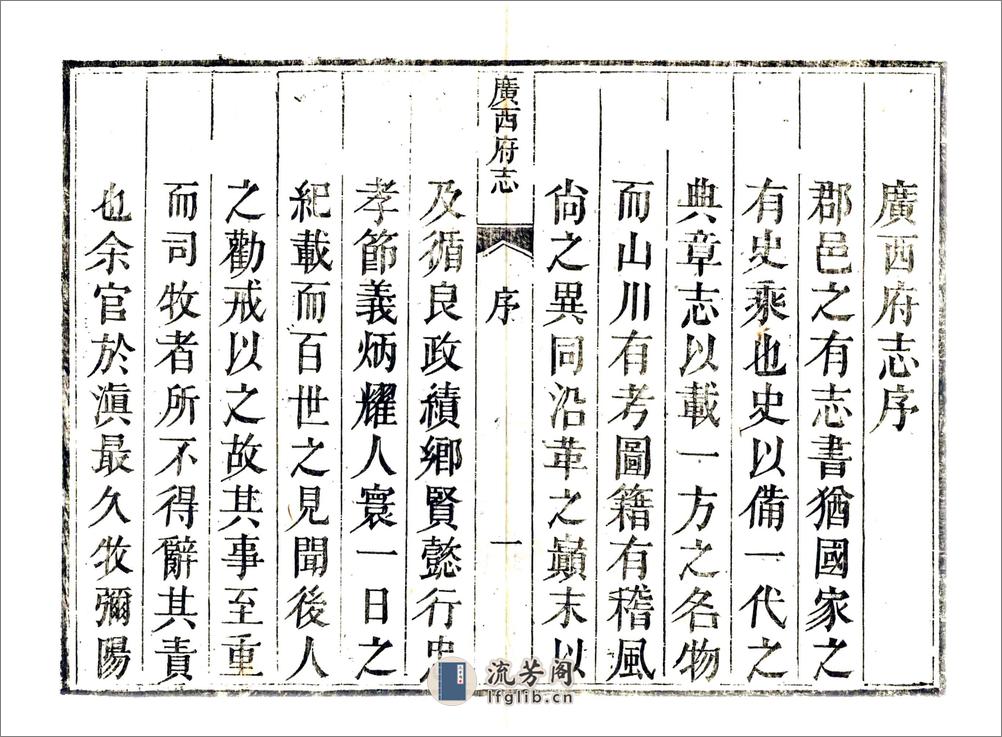 廣西府志序
郡邑之有志書猶國家之
有史乘也史以備一代之
典章志以載一方之名物
而山川有考圖籍有稽風
尙之異同沿革之巔末以
廣西府志
序
一
及循良政績鄉賢懿行忠
孝節義炳耀人寰一日之
紀載而百世之見聞後人
之勸戒以之故其事至重
而司牧者所不得辭其責
也余官於滇最久牧彌陽
流芳阁
lfglib.cn